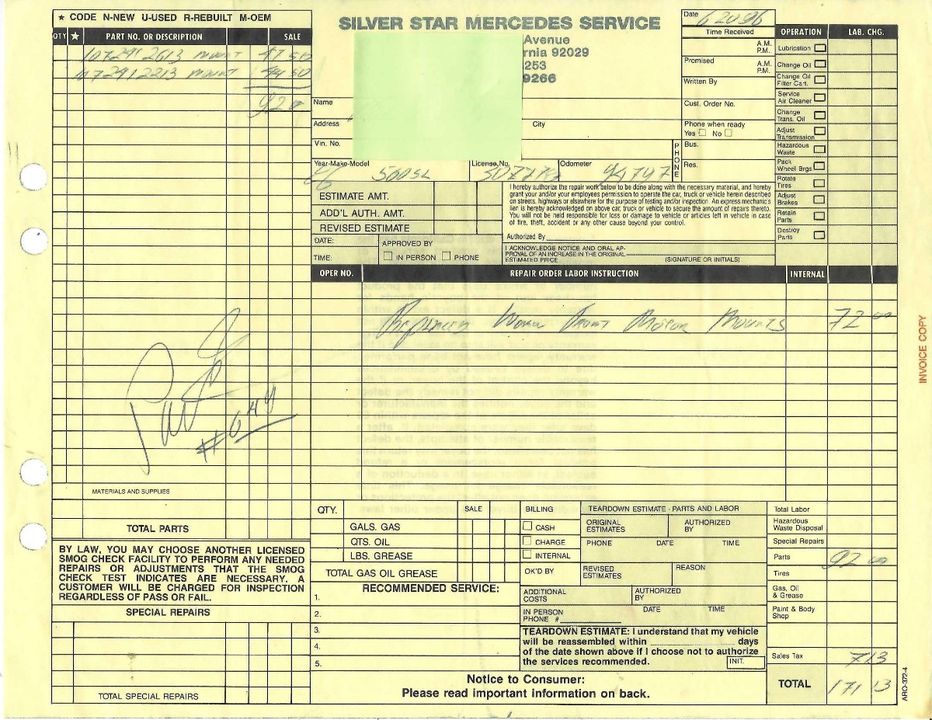 ★ CODE N-NEW U-USED R-REBUILT M-OEM
QTY ★ PART NO. OR DESCRIPTION SALE
107 241 2613 mount 47 50
107 241 2213 mount 44 50
92 00
MATERIALS AND SUPPLIES
TOTAL PARTS
BY LAW, YOU MAY CHOOSE ANOTHER LICENSED
SMOG CHECK FACILITY TO PERFORM ANY NEEDED
REPAIRS OR ADJUSTMENTS THAT THE SMOG
CHECK TEST INDICATES ARE NECESSARY. A
CUSTOMER WILL BE CHARGED FOR INSPECTION
REGARDLESS OF PASS OR FAIL.
SPECIAL REPAIRS
TOTAL SPECIAL REPAIRS
SILVER STAR MERCEDES SERVICE
Avenue
rnia 92029
253
9266
Name
Address
City
Vin. No.
Year-Make-Model
License No.
Odometer
500SL
94747
Date
62096
Time Received
A.M.
P.M.
Promised
A.M.
P.M.
Written By
Cust. Order No.
Phone when ready
Yes No
PHONE
Bus.
Res.
OPERATION LAB. CHG.
Lubrication
Change Oil
Change Oil
Filter Cart.
Service
Air Cleaner
Change
Trans. Oil
Adjust
Transmission
Hazardous
Waste
Pack
Wheel Brgs
Rotate
Tires
Adjust
Brakes
Retain
Parts
Destroy
Parts
ESTIMATE AMT.
ADD'L AUTH. AMT.
REVISED ESTIMATE
DATE:
TIME:
APPROVED BY
IN PERSON PHONE
I hereby authorize the repair work below to be done along with the necessary material, and hereby
grant your and/or your employees permission to operate the car, truck or vehicle herein described
on streets, highways or elsewhere for the purpose of testing and/or inspection. An express mechanic's
lien is hereby acknowledged on above car, truck or vehicle to secure the amount of repairs thereto.
You will not be held responsible for loss or damage to vehicle or articles left in vehicle in case
of fire, theft, accident or any other cause beyond your control.
Authorized By
I ACKNOWLEDGE NOTICE AND ORAL AP-
PROVAL OF AN INCREASE IN THE ORIGINAL
ESTIMATED PRICE
(SIGNATURE OR INITIALS)
OPER NO. REPAIR ORDER LABOR INSTRUCTION INTERNAL
Worn Front Motor Mounts 72 00
Paid
#644
QTY. SALE
GALS. GAS
QTS. OIL
LBS. GREASE
TOTAL GAS OIL GREASE
RECOMMENDED SERVICE:
1.
2.
3.
4.
5.
BILLING
CASH
CHARGE
INTERNAL
OK'D BY
TEARDOWN ESTIMATE - PARTS AND LABOR
ORIGINAL
ESTIMATES
AUTHORIZED
BY
PHONE DATE TIME
REVISED
ESTIMATES
REASON
ADDITIONAL
COSTS
AUTHORIZED
BY
IN PERSON
PHONE #
DATE TIME
TEARDOWN ESTIMATE: I understand that my vehicle
will be reassembled within days
of the date shown above if I choose not to authorize
the services recommended.
INIT.
Notice to Consumer:
Please read important information on back.
Total Labor
Hazardous
Waste Disposal
Special Repairs
Parts 92 00
Tires
Gas, Oil
& Grease
Paint & Body
Shop
Sales Tax 7 13
TOTAL 171 13
INVOICE COPY
ARO-372-4